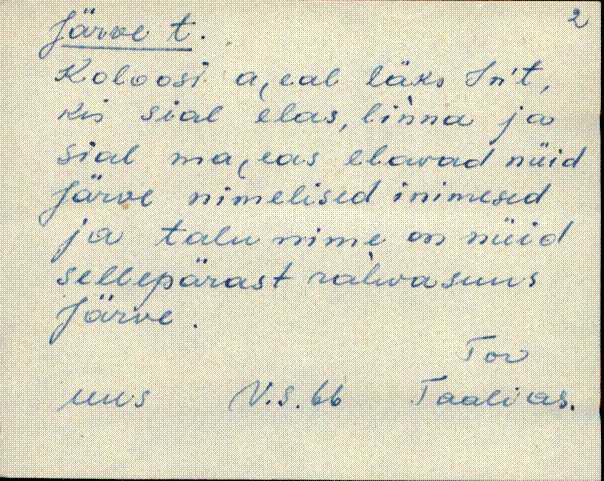 2
Järve t.
Koloosi a,eal läks In't,
kis sial elas, linna ja
sial ma,eas elavad nüid
Järve nimelised inimesed
ja talu nime on nüid
sellepärast rahva suus
Järve.
Tor
uus V.S. 66 Taalias.